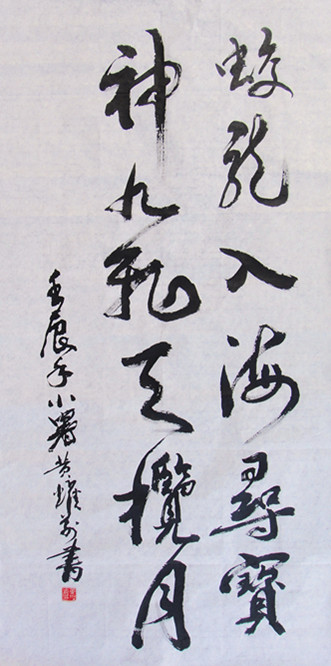 蛟龍入海尋寶
神九飛天攬月
壬辰年小暑黄耀書